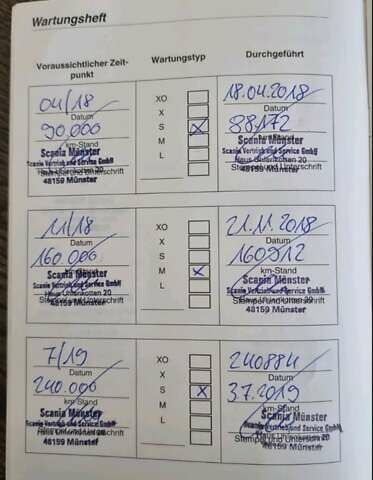 Wartungsheft
Voraussichtlicher Zeit-
punkt
Wartungstyp
Durchgeführt
04/18
Datum
90.000
km-Stand
Scania Münster
Scania Vertrieb und Service GmbH
48159 Münster
XO
X
S
M
L
18.04.2018
Datum
88.172
km-Stand
Scania Münster
Scania Vertrieb und Service GmbH
Haus Uhlenkotten 20
Stempel und Unterschrift
48159 Münster
11/18
Datum
160.000
km-Stand
Scania Münster
Scania Vertrieb und Service GmbH
Stempel und Unterschrift
48159 Münster
XO
X
S
M
L
21.11.2018
Datum
160912
km-Stand
Scania Münster
Scania Vertrieb und Service GmbH
Stempel und Unterschrift
48159 Münster
7/19
Datum
240.000
km-Stand
Scania Münster
Scania Vertrieb und Service GmbH
Haus Uhlenkotten 20
48159 Münster
XO
X
S
M
L
240884
Datum
3.7.2019
km-Stand
Scania Münster
Scania Vertrieb und Service GmbH
Stempel und Unterschrift
48159 Münster